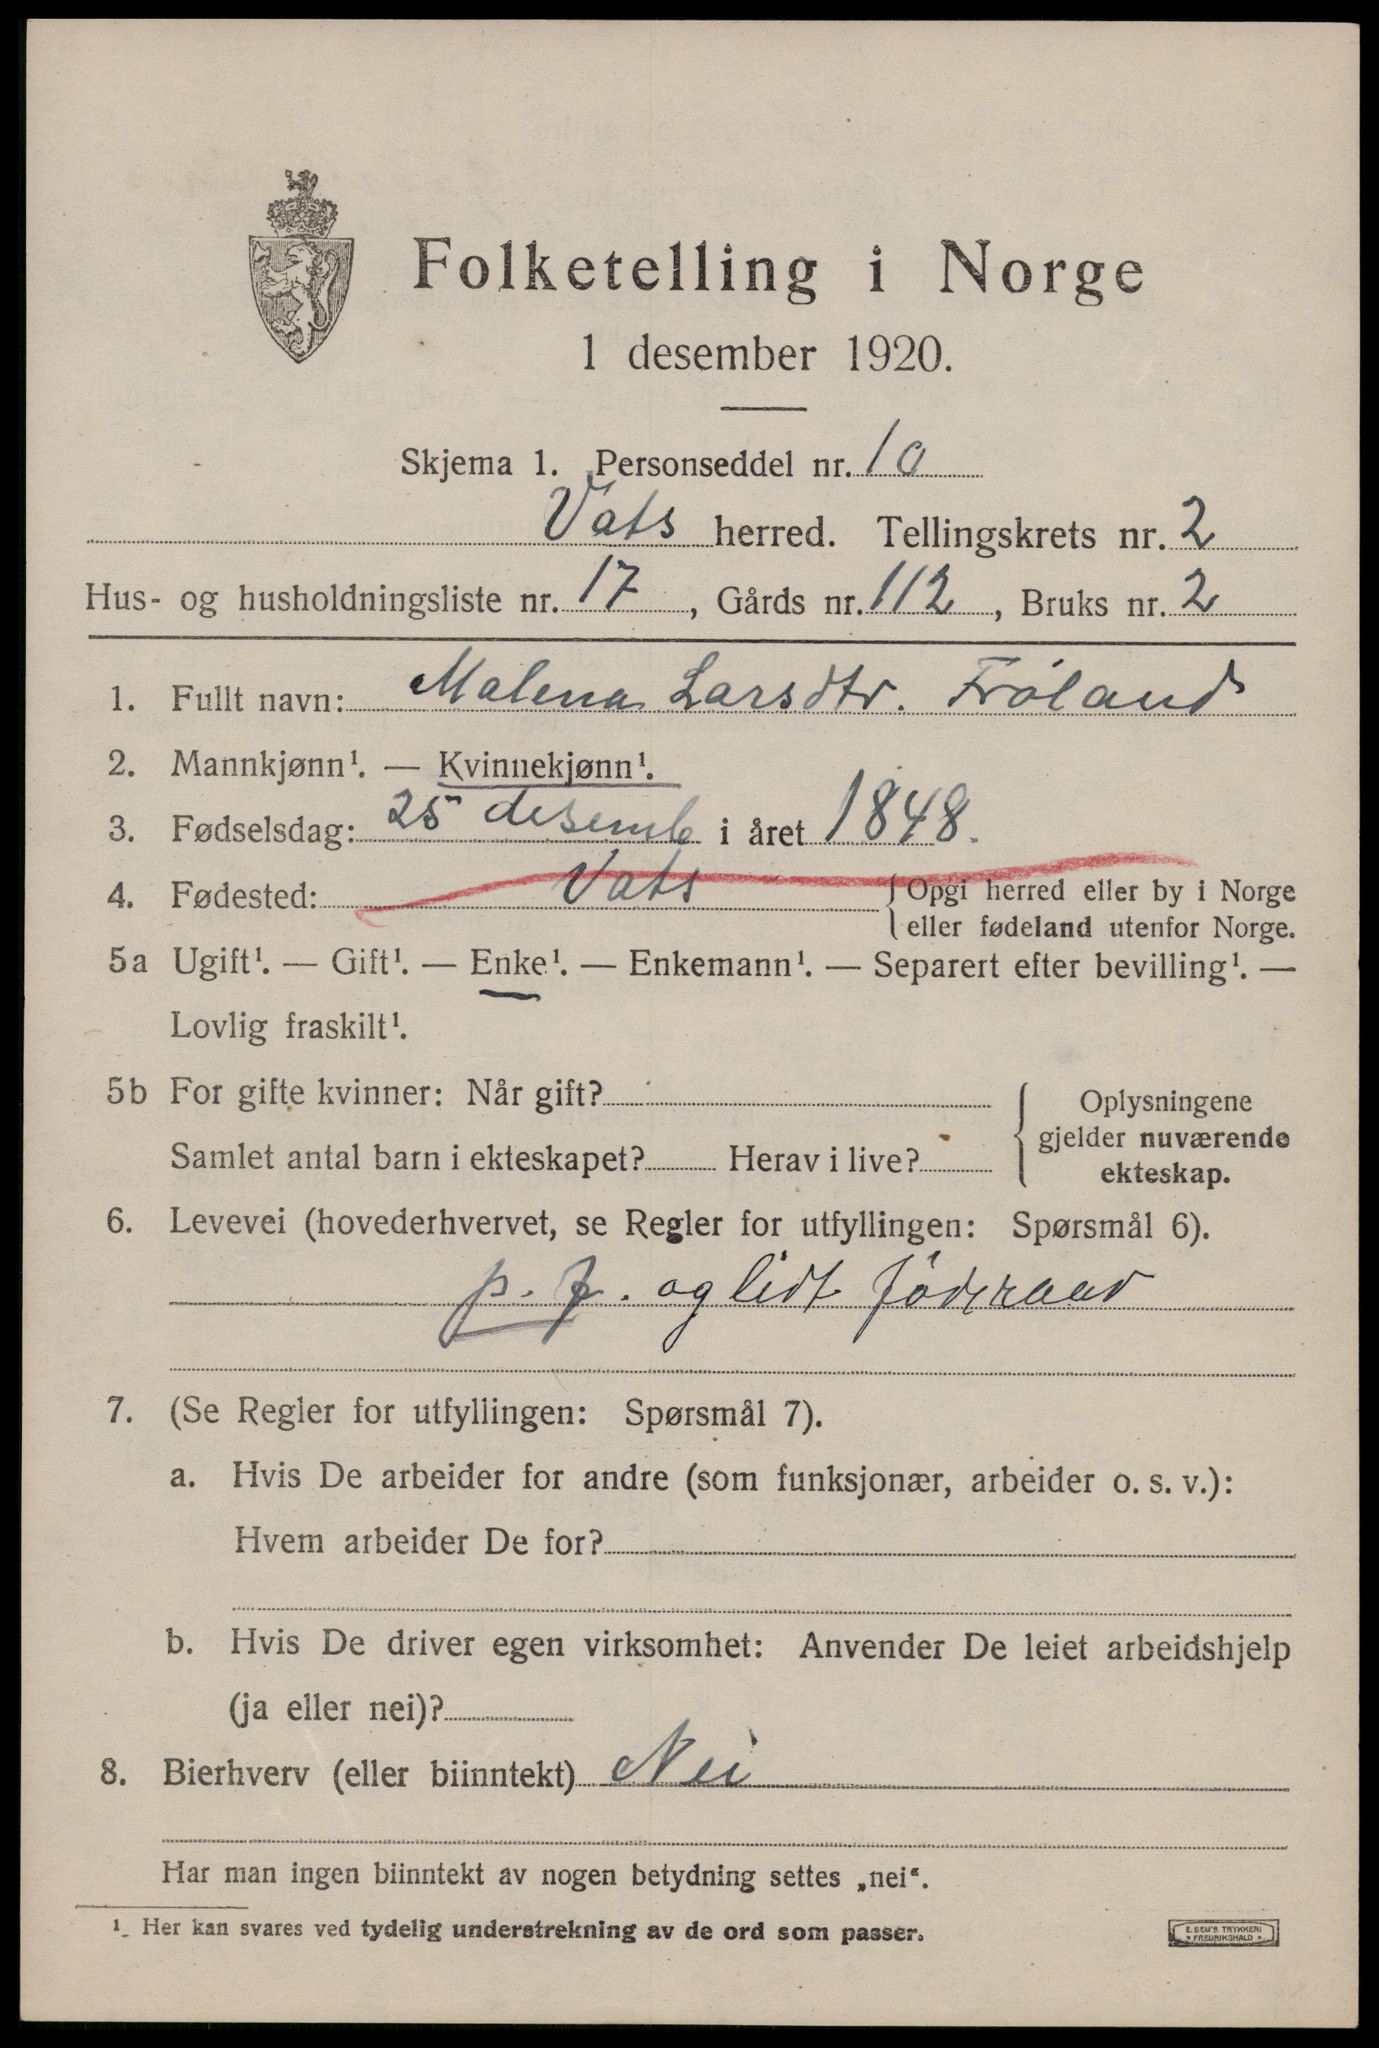 Folketelling i Norge
1 desember 1920.
Skjema 1. Personseddel nr. 10
Vats herred. Tellingskrets nr. 2
Hus- og husholdningsliste nr. 17, Gårds nr. 112, Bruks nr. 2
1. Fullt navn: Malena Larsdtr. Frøland
2. Mannkjønn¹. — Kvinnekjønn¹.
3. Fødselsdag: 25 desemb i året 1848.
4. Fødested: Vats {Opgi herred eller by i Norge
eller fødeland utenfor Norge.
5a Ugift¹. — Gift¹. — Enke¹. — Enkemann¹. — Separert efter bevilling¹. —
Lovlig fraskilt¹.
5b For gifte kvinner: Når gift?
Samlet antal barn i ekteskapet? Herav i live?
Oplysningene
gjelder nuværende
ekteskap.
6. Levevei (hovederhvervet, se Regler for utfyllingen: Spørsmål 6).
p. f. og lidt føderaad
7. (Se Regler for utfyllingen: Spørsmål 7).
a. Hvis De arbeider for andre (som funksjonær, arbeider o. s. v.):
Hvem arbeider De for?
b. Hvis De driver egen virksomhet: Anvender De leiet arbeidshjelp
(ja eller nei)?
8. Bierhverv (eller biinntekt) Nei
Har man ingen biinntekt av nogen betydning settes „nei“.
¹ Her kan svares ved tydelig understrekning av de ord som passer.
E. SEM'S TRYKKERI
* FREDRIKSHALD *